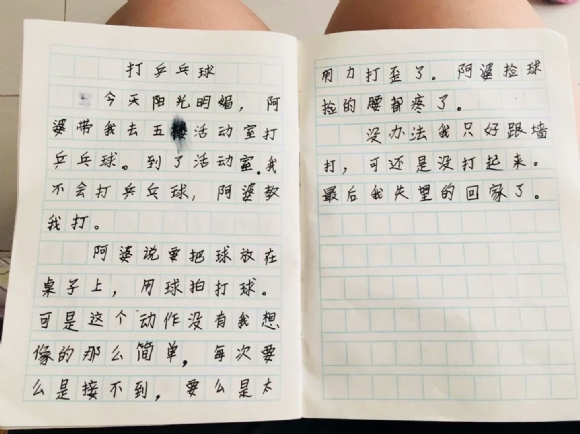 打乒乓球
今天阳光明媚，阿
婆带我去五楼活动室打
乒乓球。到了活动室。我
不会打乒乓球，阿婆教
我打。
阿婆说要把球放在
桌子上，用球拍打球。
可是这个动作没有我想
像的那么简单，每次要
么是接不到，要么是太
用力打歪了。阿婆捡球
捡的腰都疼了。
没办法我只好跟墙
打，可还是没打起来。
最后我失望的回家了。